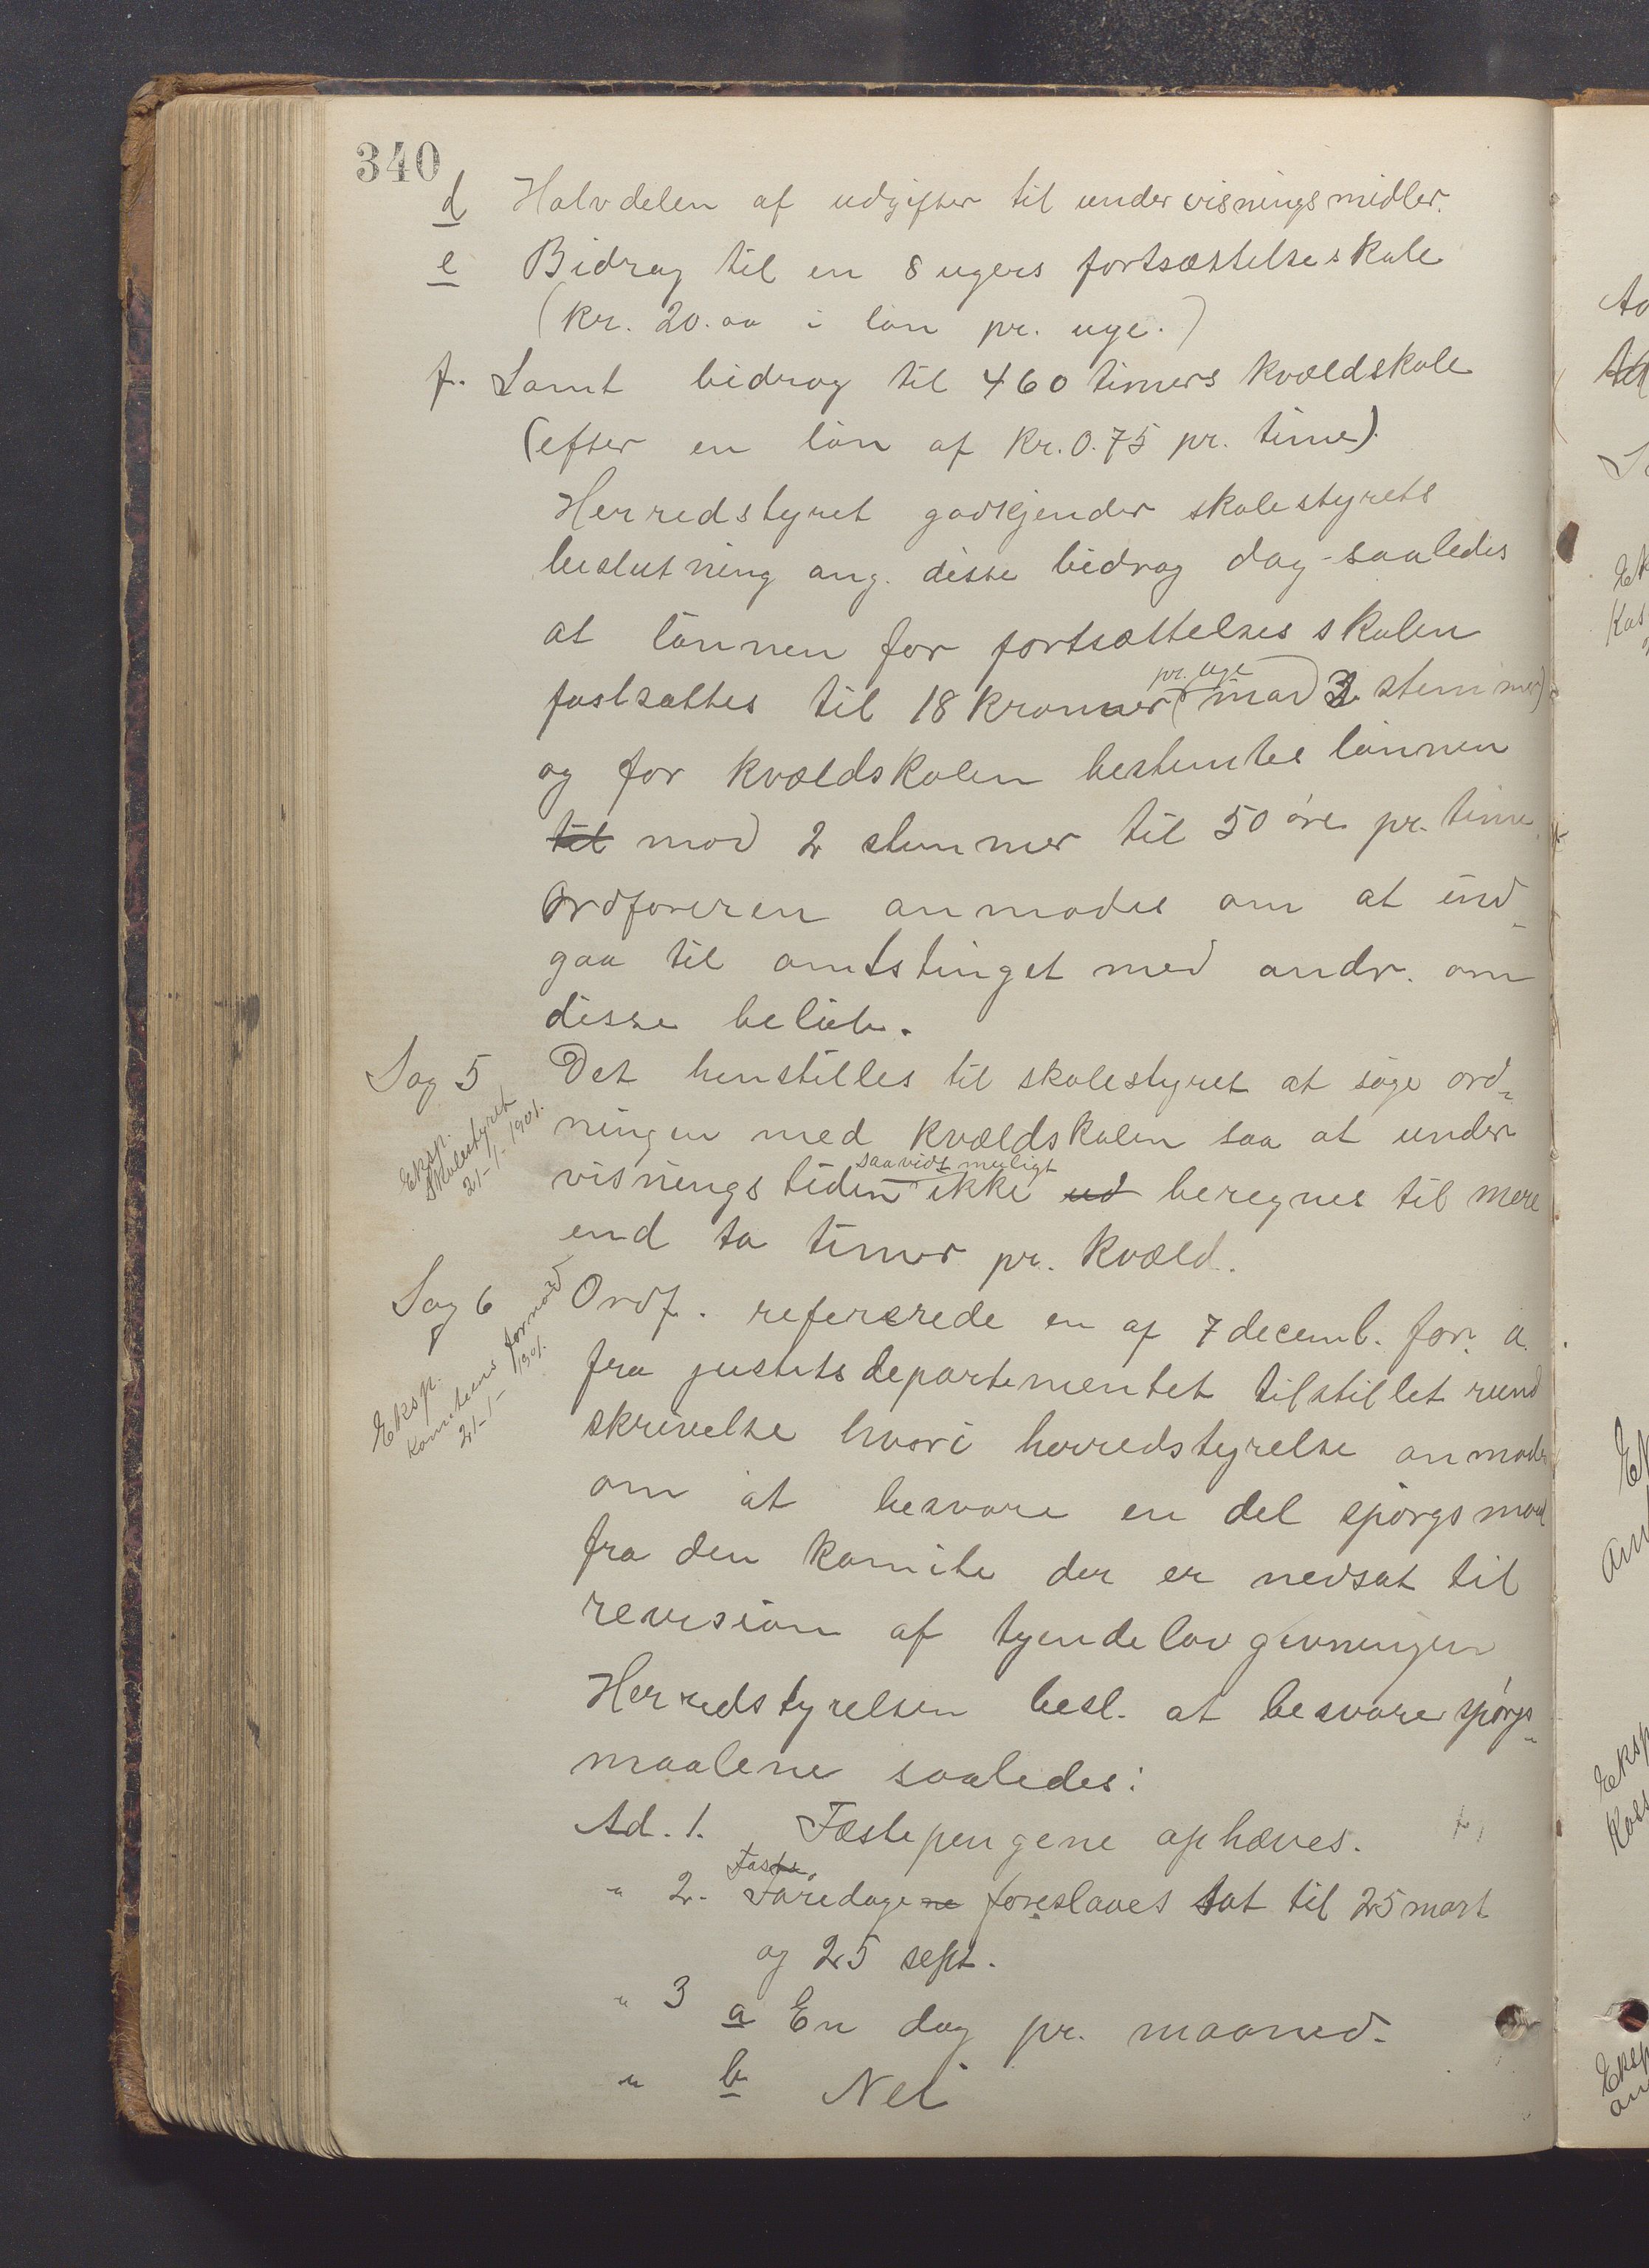 340
d Halvdelen af udgifter til undervisningsmidler.
e Bidrag til en 8 ugers fortsættelseskole
(kr. 20.00 i løn pr. uge.)
f. Samt bidrag til 460 timers kvældskole
(efter en løn af kr. 0.75 pr. time).
Herredstyret godkjender skolestyrets
beslutning ang. disse bidrag dog saaledes
at lønnen for fortsættelses skolen
pr. uge
fastsættes til 18 kroner (mod 3 stemmer)
og for kvældskolen bestemtes lønnen
til mod 2 stemmer til 50 øre pr. time.
Ordføreren anmodes om at ind-
gaa til amtstinget med andr. om
disse beløb.
Sag 5 Det henstilles til skolestyret at søge ord-
Eksp. Skolestyret 21-1-1901.
ningen med kvældskolen saa at under
saavidt muligt
visningstiden ikke ud beregnes til mere
end to timer pr. kvæld.
Sag 6 Ordf. refererede en af 7 decemb. for. a.
Eksp. Komiteens formød 21-1-1901.
fra justitsdepartementet tilstillet rund
skrivelse hvori herredstyrelse anmodes
om at besvare en del spørgsmaal
fra den komite der er nedsat til
revision af tyendelovgivningen
Herredstyrelsen besl. at besvare spørgs-
maalene saaledes:
Ad. 1. Fæstepengene ophæves.
Faste
" 2. Faredagene foreslaaes sat til 25 mart
og 25 sept.
" 3 a En dag pr. maaned.
" b Nei